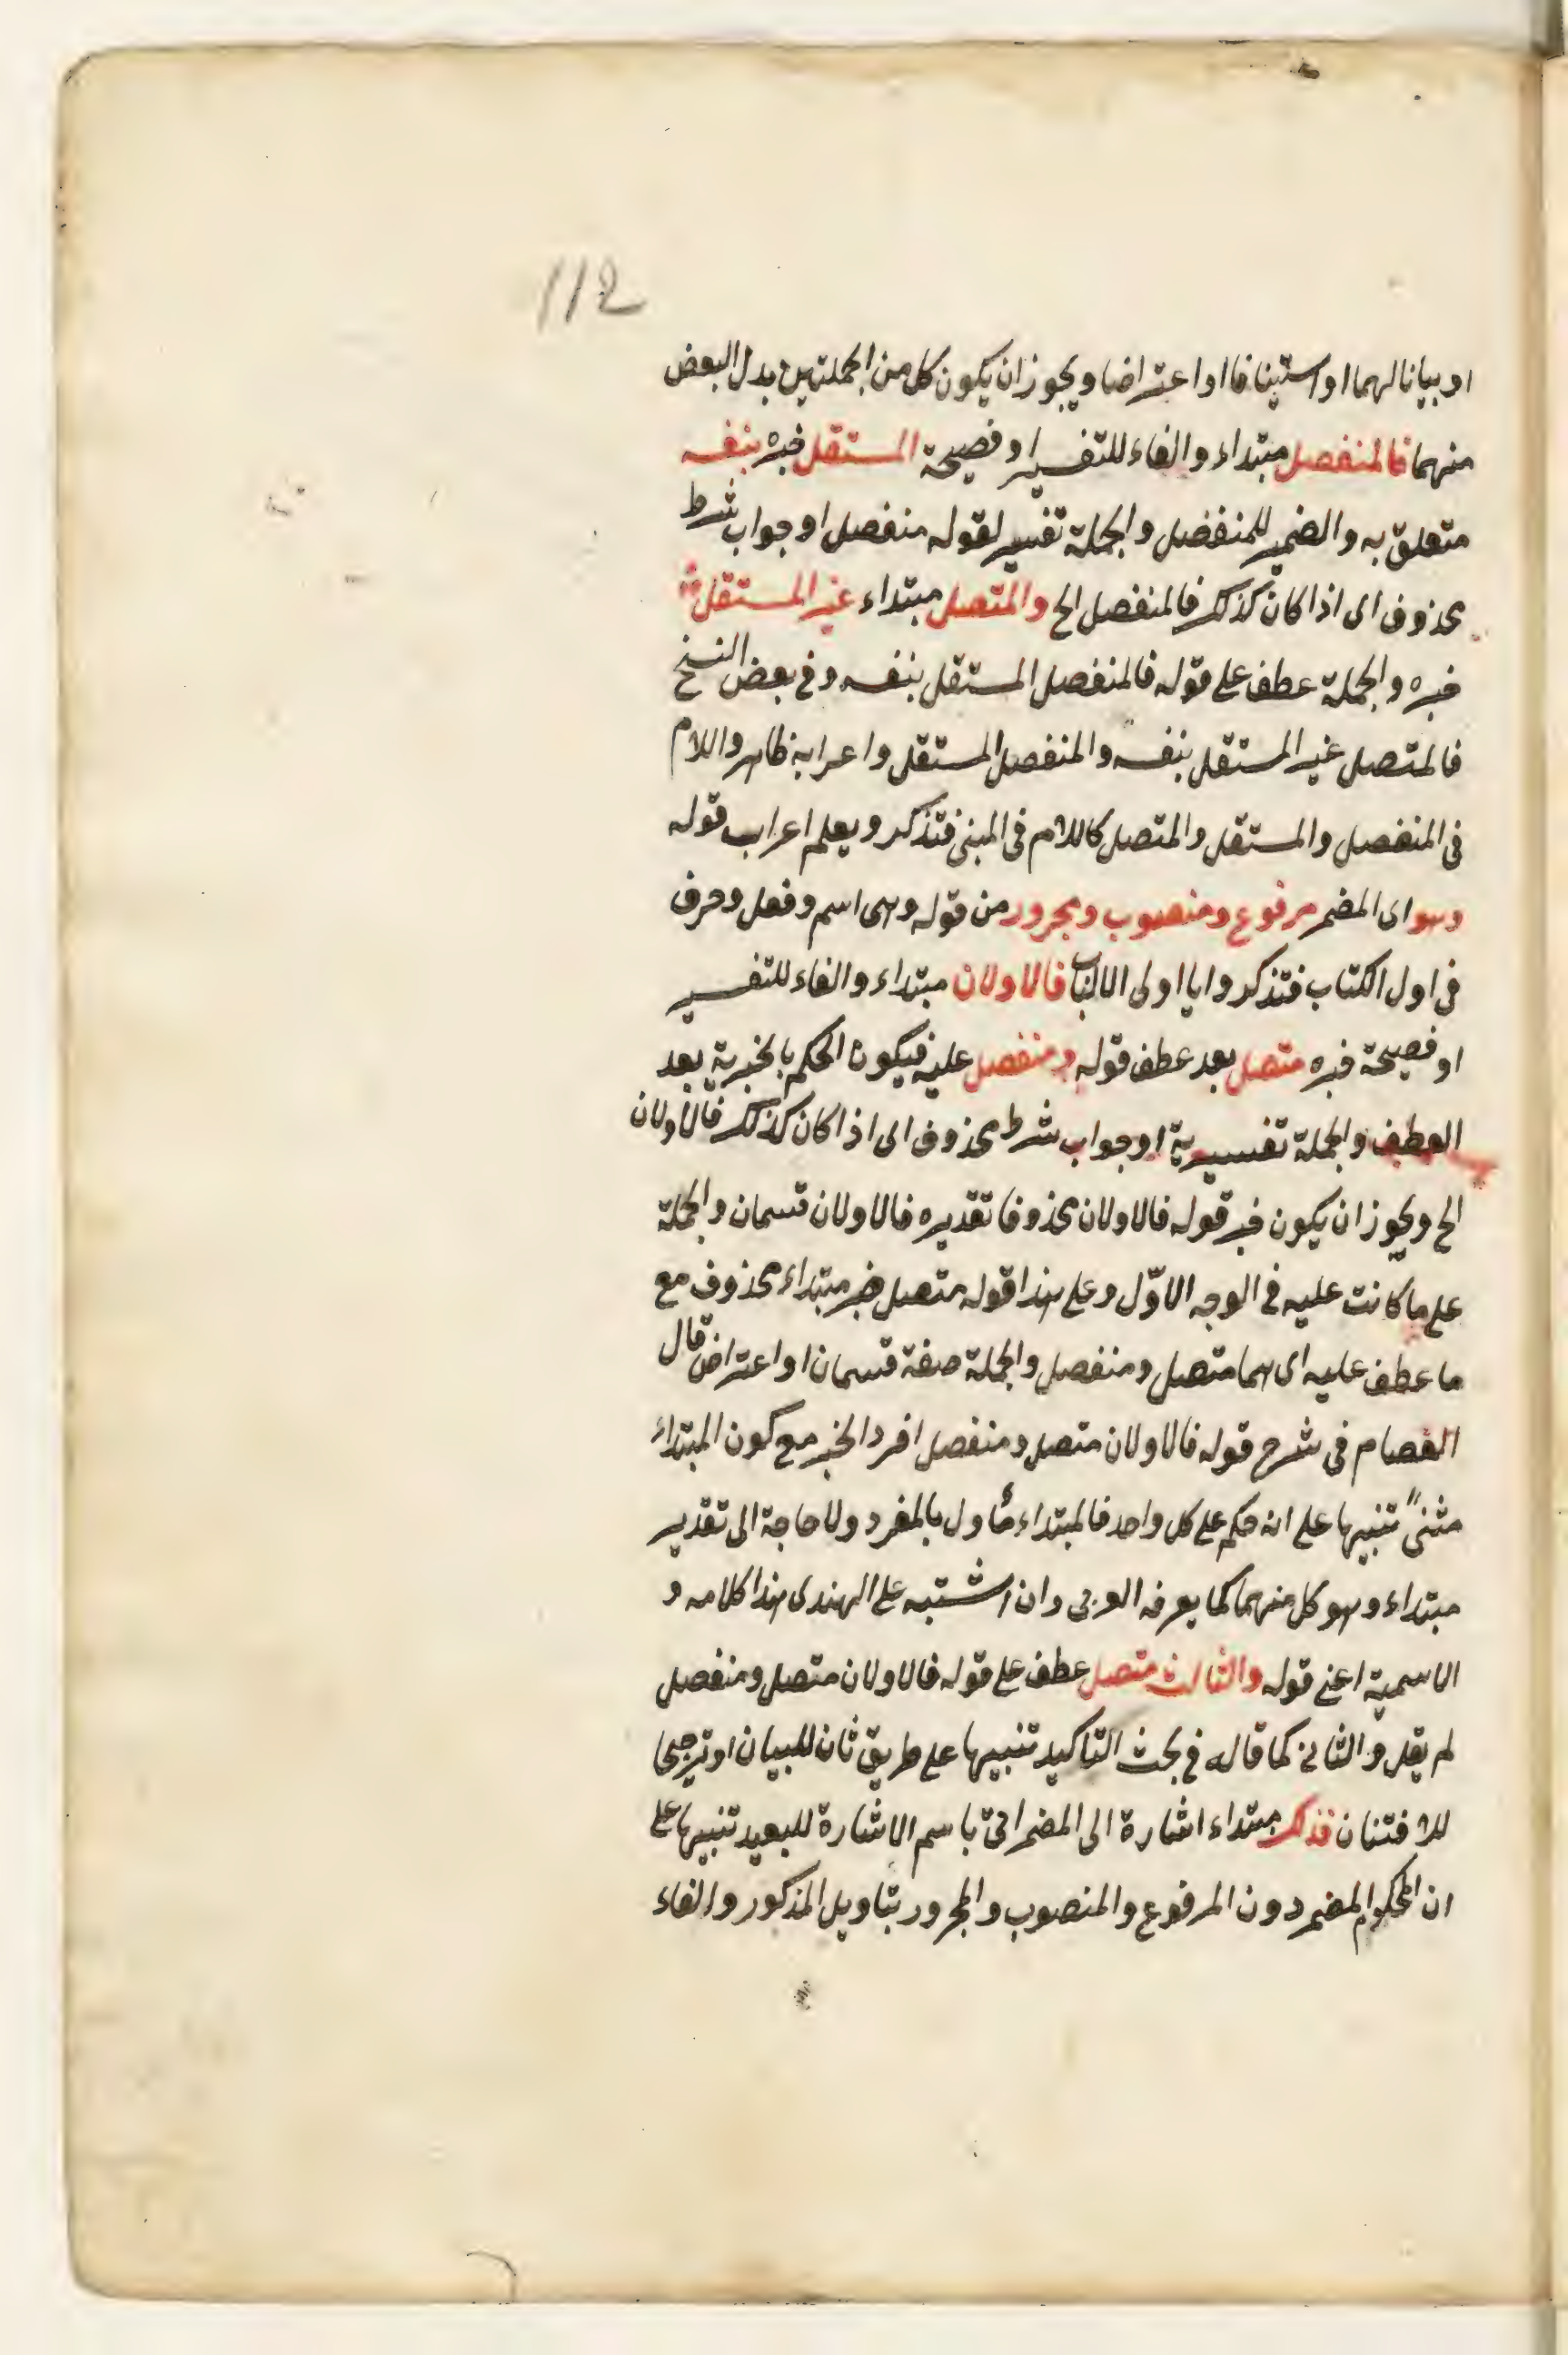 112
او بيانا لهما او استينافا او اعتراضا ويجوز ان يكون كل من الجملتين بدل البعض
منهما فالمنفصل مبتداء والفاء للتفسير او فصيحة المستقل خبره بنفسه
متعلق به والضمير للمنفصل والجملة تفسير لقوله منفصل او جواب شرط
محذوف اى اذا كان كذلك فالمنفصل الخ والمتصل مبتداء غير المستقل
خبره والجملة عطف على قوله فالمنفصل المستقل بنفسه وفى بعض النسخ
فالمتصل غير المستقل بنفسه والمنفصل المستقل واعرابه ظاهر واللام
فى المنفصل والمستقل والمتصل كاللام فى المبنى فتذكر ويعلم اعراب قوله
وهو اى المضمر مرفوع ومنصوب ومجرور من قوله وهى اسم وفعل وحرف
فى اول الكتاب فتذكر وايا اولى الالباب فالاولان مبتداء والفاء للتفسير
او فصيحة خبره متصل بعد عطف قوله ومنفصل عليه فيكون الحكم بالخبرية بعد
العطف والجملة تفسيرية او جواب شرط محذوف اى اذا كان كذلك فالاولان
الخ ويجوز ان يكون خبر قوله فالاولان محذوفا تقديره فالاولان قسمان والجملة
على ما كانت عليه فى الوجه الاوّل وعلى هذا قوله متصل خبر مبتداء محذوف مع
ما عطف عليه اى هما متصل ومنفصل والجملة صفة قسمان او اعتراض قال
العصام فى شرح قوله فالاولان متصل ومنفصل افرد الخبر مع كون المبتداء
مثنىً تنبيها على انه حكم على كل واحد فالمبتداء مأول بالمفرد ولا حاجة الى تقدير
مبتداء وهو كل منهما كما يعرفه العربى وان اشتبه على الهندى هذا كلامه و
الاسمية اعنى قوله والثالث متصل عطف على قوله فالاولان متصل ومنفصل
لم يقل والثانى كما قاله فى بحث التاكيد تنبيها على طريق ثان للبيان او ترجيحا
للافتنان فذلك مبتداء اشارة الى المضمر اتى باسم الاشارة للبعيد تنبيها على
ان المحكوم المضمر دون المرفوع والمنصوب والمجرور بتاويل المذكور والفاء